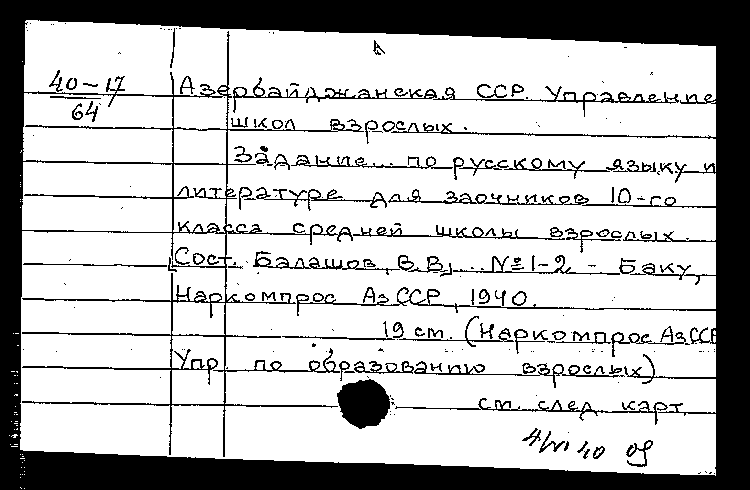 40-17
64
Азербайджанская ССР. Управление
школ взрослых.
Задание... по русскому языку и
литературе для заочников 10-го
класса средней школы взрослых.
Сост. Балашов, В.В., .. №1-2 - Баку,
Наркомпрос АзССР, 1940.
19 см. (Наркомпрос АзССР
Упр. по образованию взрослых)
см. след. карт.
4/VI 40